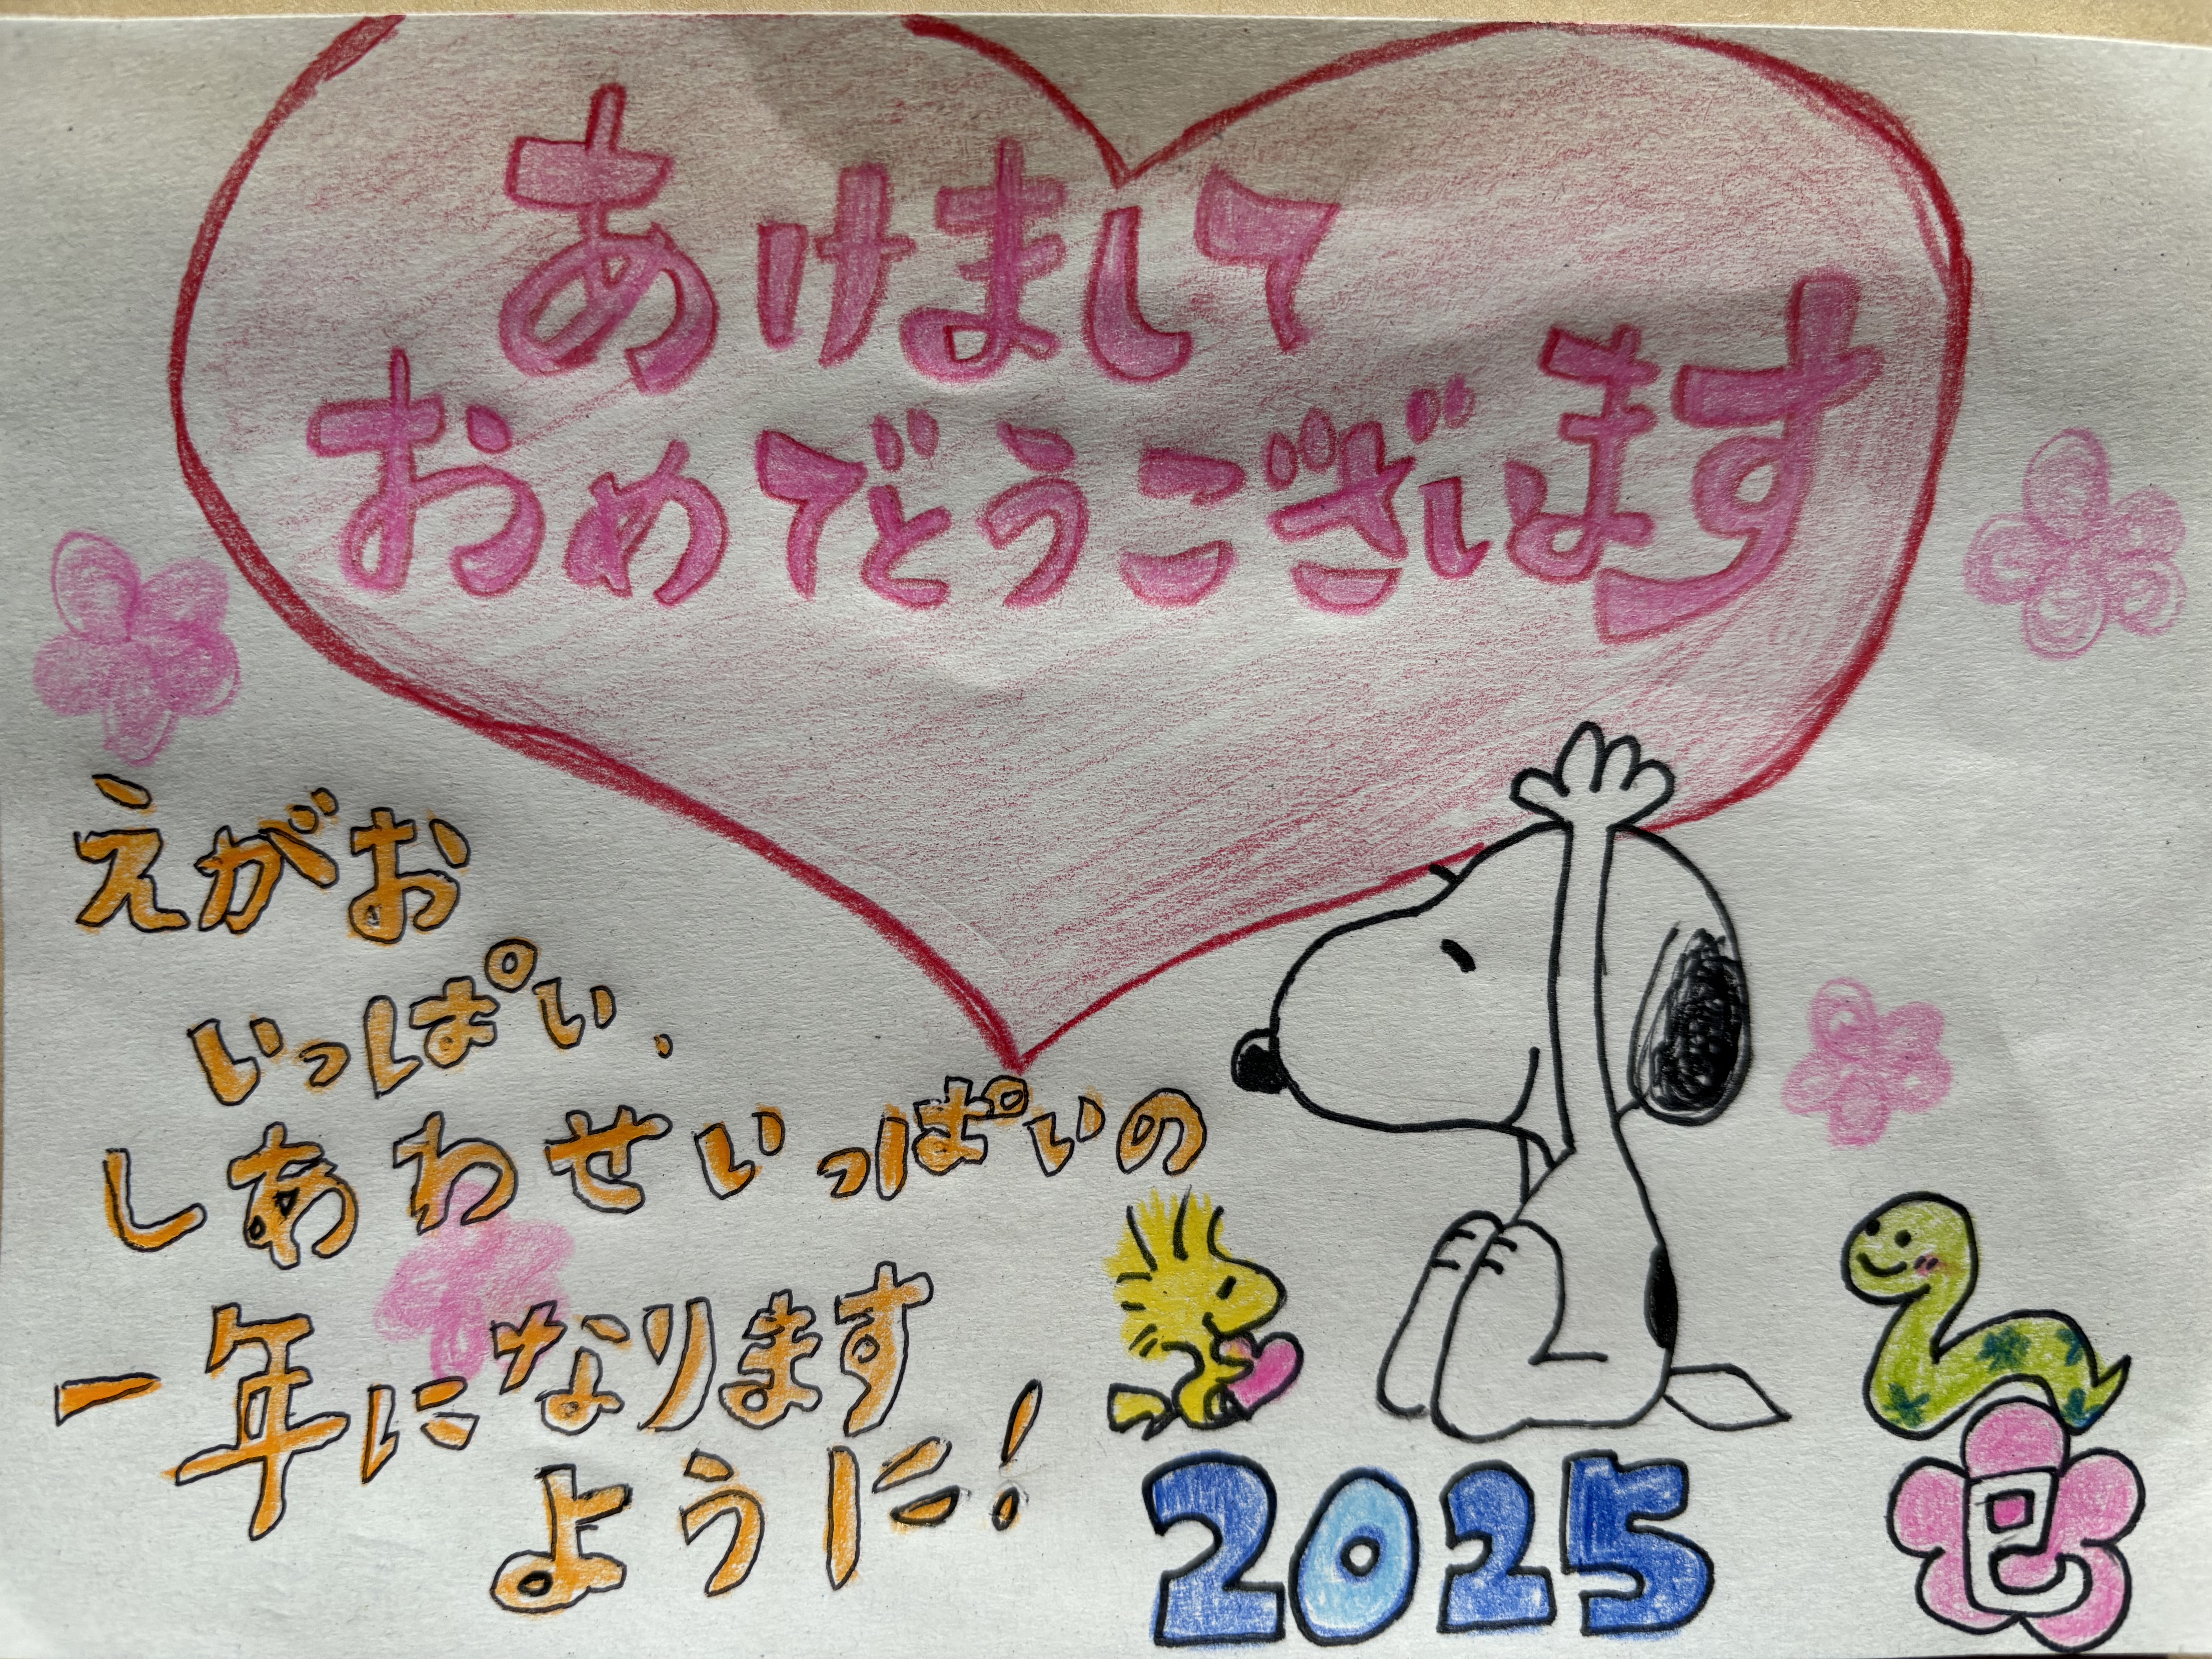 あけまして
おめでとうございます
えがお
いっぱい、
しあわせいっぱいの
一年になります
ように!
2025
巳